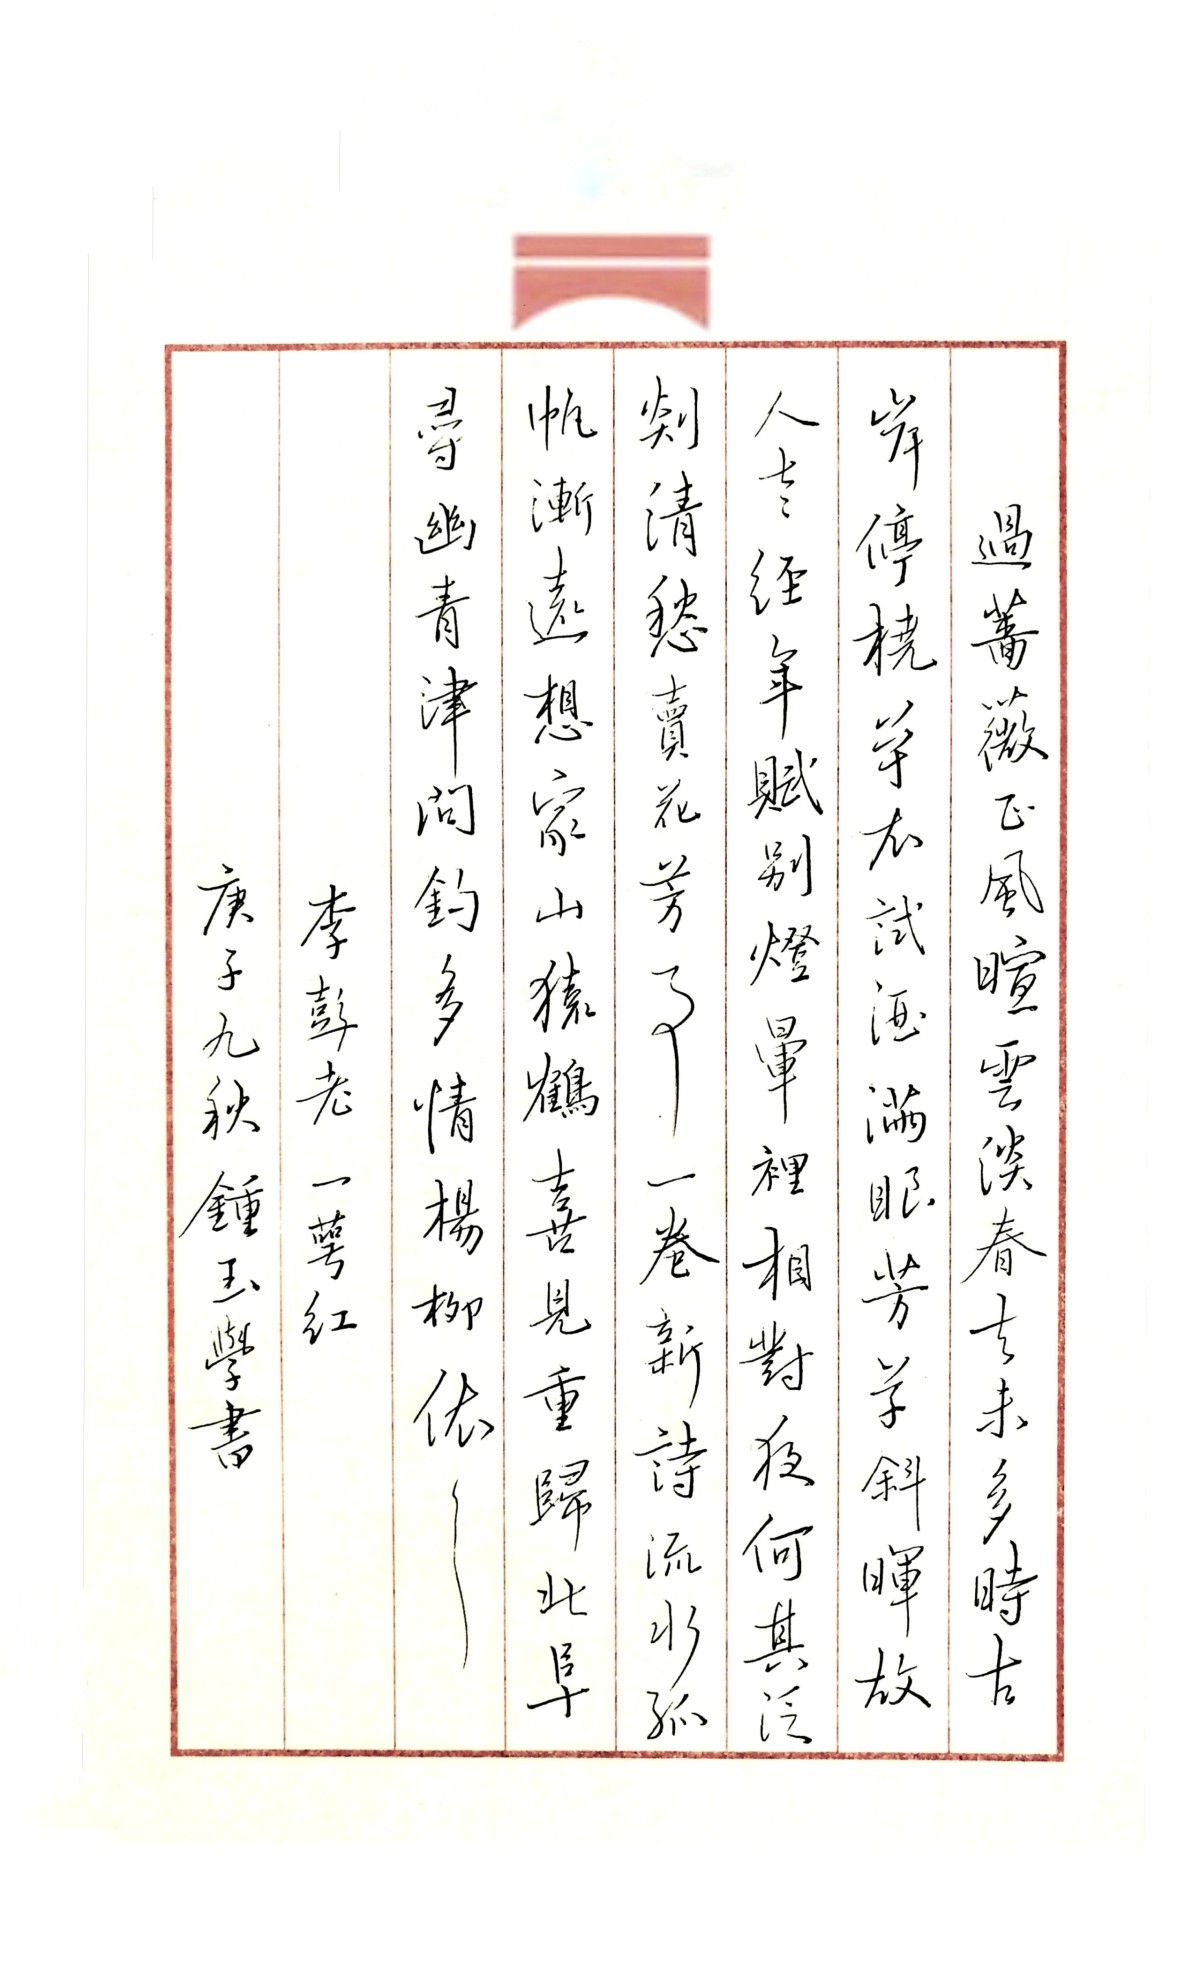 過薔薇正風暄雲淡春去未多時古
岸停橈單衣試酒滿眼芳草斜暉故
人老經年賦別燈暈裡相對夜何其泛
剡清愁賣花芳事一卷新詩流水孤
帆漸遠想家山猿鶴喜見重歸北阜
尋幽青津問釣多情楊柳依依
李彭老 一萼紅
庚子九秋鍾玉學書